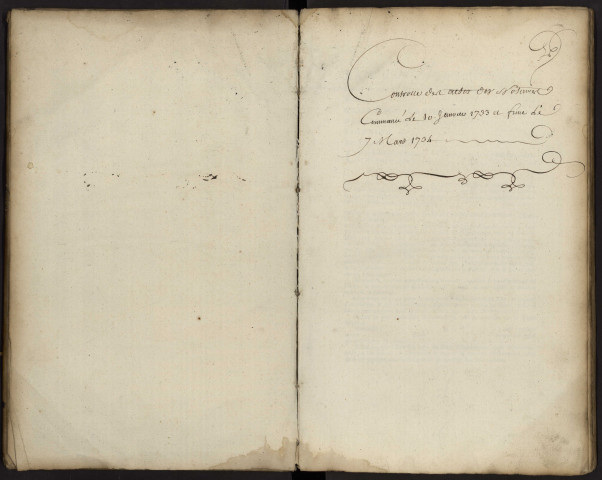 Controlle des actes des Notaires
Commancé le 10 Janvier 1733 et finie le
7 Mars 1734